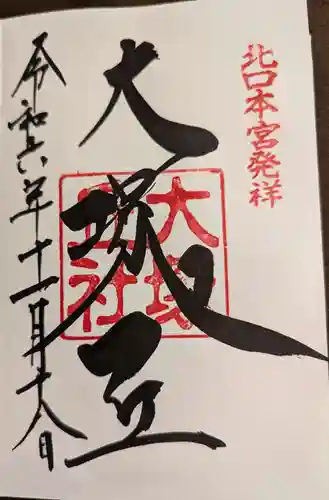 北口本宮発祥
大塚丘
大塚丘社
令和六年十一月十八日